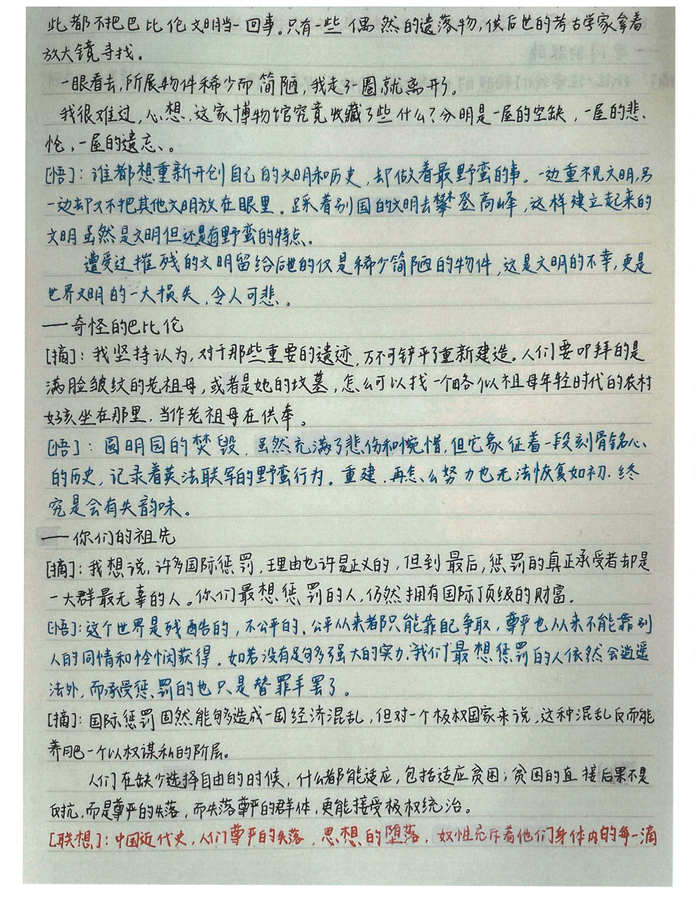 此都不把巴比伦文明当一回事。只有一些偶然的遗落物，供后世的考古学家拿着
放大镜寻找。
一眼看去，所展物件稀少而简陋，我走了一圈就离开了。
我很难过，心想，这家博物馆究竟收藏了些什么？分明是一屋的空缺，一屋的悲
怆，一屋的遗忘。
[悟]：谁都想重新开创自己的文明和历史，却做着最野蛮的事。一边重视文明，另
一边却又不把其他文明放在眼里。踩着别国的文明去攀登高峰，这样建立起来的
文明虽然是文明但还是有野蛮的特点。
遭受过摧残的文明留给后世的仅是稀少简陋的物件，这是文明的不幸，更是
世界文明的一大损失，令人可悲。
——奇怪的巴比伦
[摘]：我坚持认为，对于那些重要的遗迹，万不可铲平了重新建造。人们要叩拜的是
满脸皱纹的老祖母，或者是她的坟墓，怎么可以找一个略似祖母年轻时代的农村
女孩坐在那里，当作老祖母在供奉。
[悟]：圆明园的焚毁，虽然充满了悲伤和惋惜，但它象征着一段刻骨铭心
的历史，记录着英法联军的野蛮行为。重建，再怎么努力也无法恢复如初，终
究是会有失韵味。
——你们的祖先
[摘]：我想说，许多国际惩罚，理由也许是正义的，但到最后，惩罚的真正承受者却是
一大群最无辜的人。你们最想惩罚的人，仍然拥有国际顶级的财富。
[悟]：这个世界是残酷的，不公平的。公平从来都只能靠自己争取，尊严也从来不能靠别
人的同情和怜悯获得。如若没有足够强大的实力，我们最想惩罚的人依然会逍遥
法外，而承受惩罚的也只是替罪羊罢了。
[摘]：国际惩罚固然能够造成一国经济混乱，但对一个极权国家来说，这种混乱反而能
养肥一个以权谋私的阶层。
人们在缺少选择自由的时候，什么都能适应，包括适应贫困；贫困的直接后果不是
反抗，而是尊严的失落，而失落尊严的群体，更能接受极权统治。
[联想]：中国近代史，人们尊严的失落，思想的堕落，奴性充斥着他们身体内的每一滴